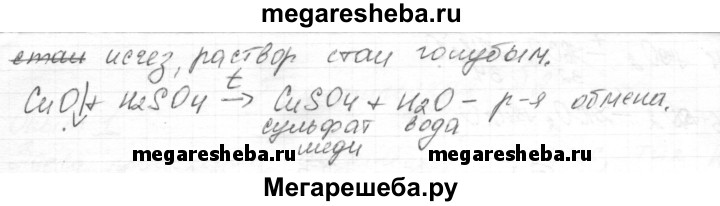 megaresheba.ru
стал исчез, раствор стал голубым.
t
CuO↓ + H2SO4 → CuSO4 + H2O – р-я обмена.
сульфат вода
меди
megaresheba.ru megaresheba.ru
Мегарешеба.ру